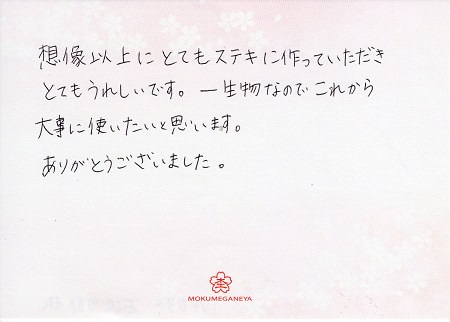 想像以上にとてもステキに作っていただき
とてもうれしいです。一生物なのでこれから
大事に使いたいと思います。
ありがとうございました。
MOKUMEGANEYA